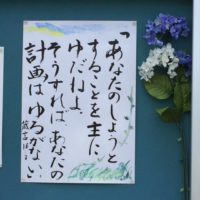 「あなたのしようと
することを主に
ゆだねよ。
そうすれば、あなたの
計画はゆるがない。
箴言16:3